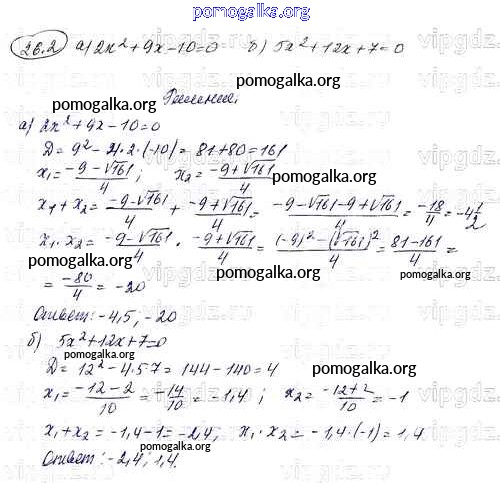 pomogalka.org
26.2 а) 2x² + 9x - 10 = 0 б) 5x² + 12x + 7 = 0
pomogalka.org
Решение.
а) 2x² + 9x - 10 = 0
pomogalka.org
D = 9² - 4·2·(-10) = 81 + 80 = 161
x₁ = (-9 - √161)/4 ; x₂ = (-9 + √161)/4
pomogalka.org
x₁ + x₂ = (-9 - √161)/4 + (-9 + √161)/4 = (-9 - √161 - 9 + √161)/4 = -18/4 = -4 1/2
x₁ · x₂ = (-9 - √161)/4 · (-9 + √161)/4 = ((-9)² - (√161)²)/4 = (81 - 161)/4 =
pomogalka.org
pomogalka.org
= -80/4 = -20
Ответ: -4,5; -20
б) 5x² + 12x + 7 = 0
pomogalka.org
D = 12² - 4·5·7 = 144 - 140 = 4
pomogalka.org
x₁ = (-12 - 2)/10 = -14/10 = -1,4 ; x₂ = (-12 + 2)/10 = -1
x₁ + x₂ = -1,4 - 1 = -2,4; x₁ · x₂ = -1,4·(-1) = 1,4
pomogalka.org
pomogalka.org
Ответ: -2,4; 1,4.